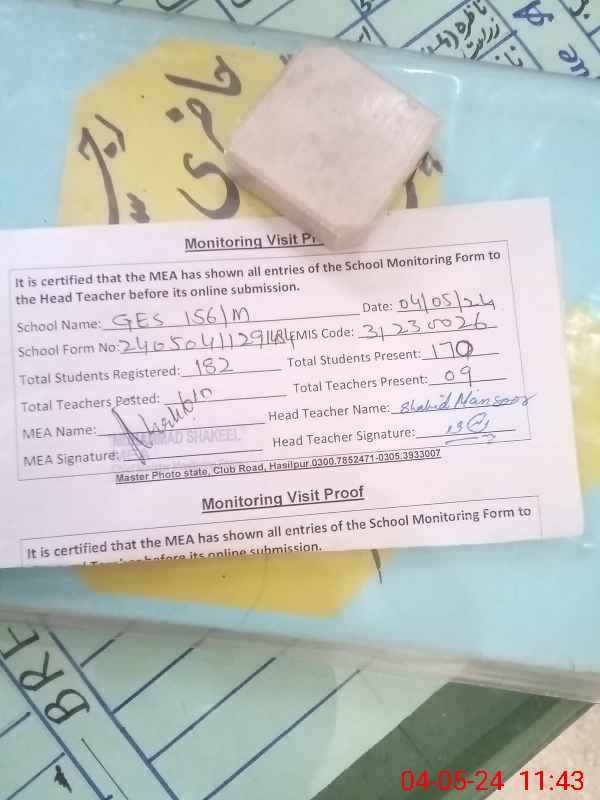 حاضری
Monitoring Visit
It is certified that the MEA has shown all entries of the School Monitoring Form to
the Head Teacher before its online submission.
School Name: GES 156/M Date: 04/05/24
School Form No: EMIS Code: 31230026
Total Students Registered: 182 Total Students Present: 170
Total Teachers Posted: 10 Total Teachers Present: 09
MEA Name: Head Teacher Name: Shahid Mansoor
MUHAMMAD SHAKEEL
MEA Signature: Head Teacher Signature:
Master Photo state, Club Road, Hasilpur,0300.7852471-0305.3933007
Monitoring Visit Proof
It is certified that the MEA has shown all entries of the School Monitoring Form to
before its online submission.
BRE
04-05-24 11:43